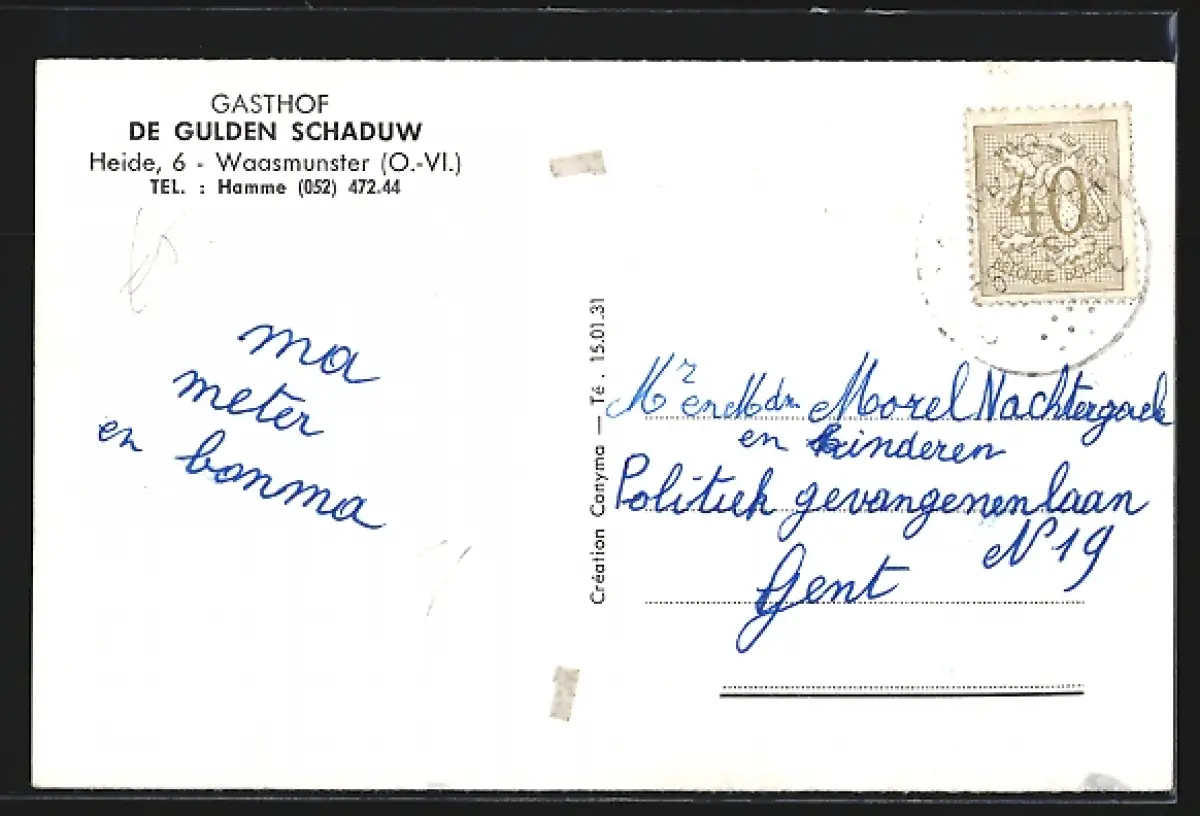 GASTHOF
DE GULDEN SCHADUW
Heide, 6 - Waasmunster (O.-Vl.)
TEL. : Hamme (052) 472.44
ma
meter
en bonma
Création Canyma — Té. 15.01.31
40
BELGIQUE BELGIË
Mr en Mdm Morel Nachtergaele
en kinderen
Politiek gevangenenlaan
N 19
Gent